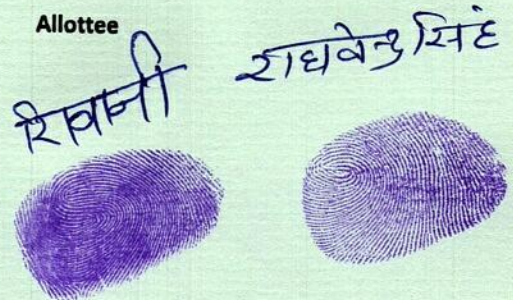 Allottee
शिवानी
राघवेन्द्र सिंह